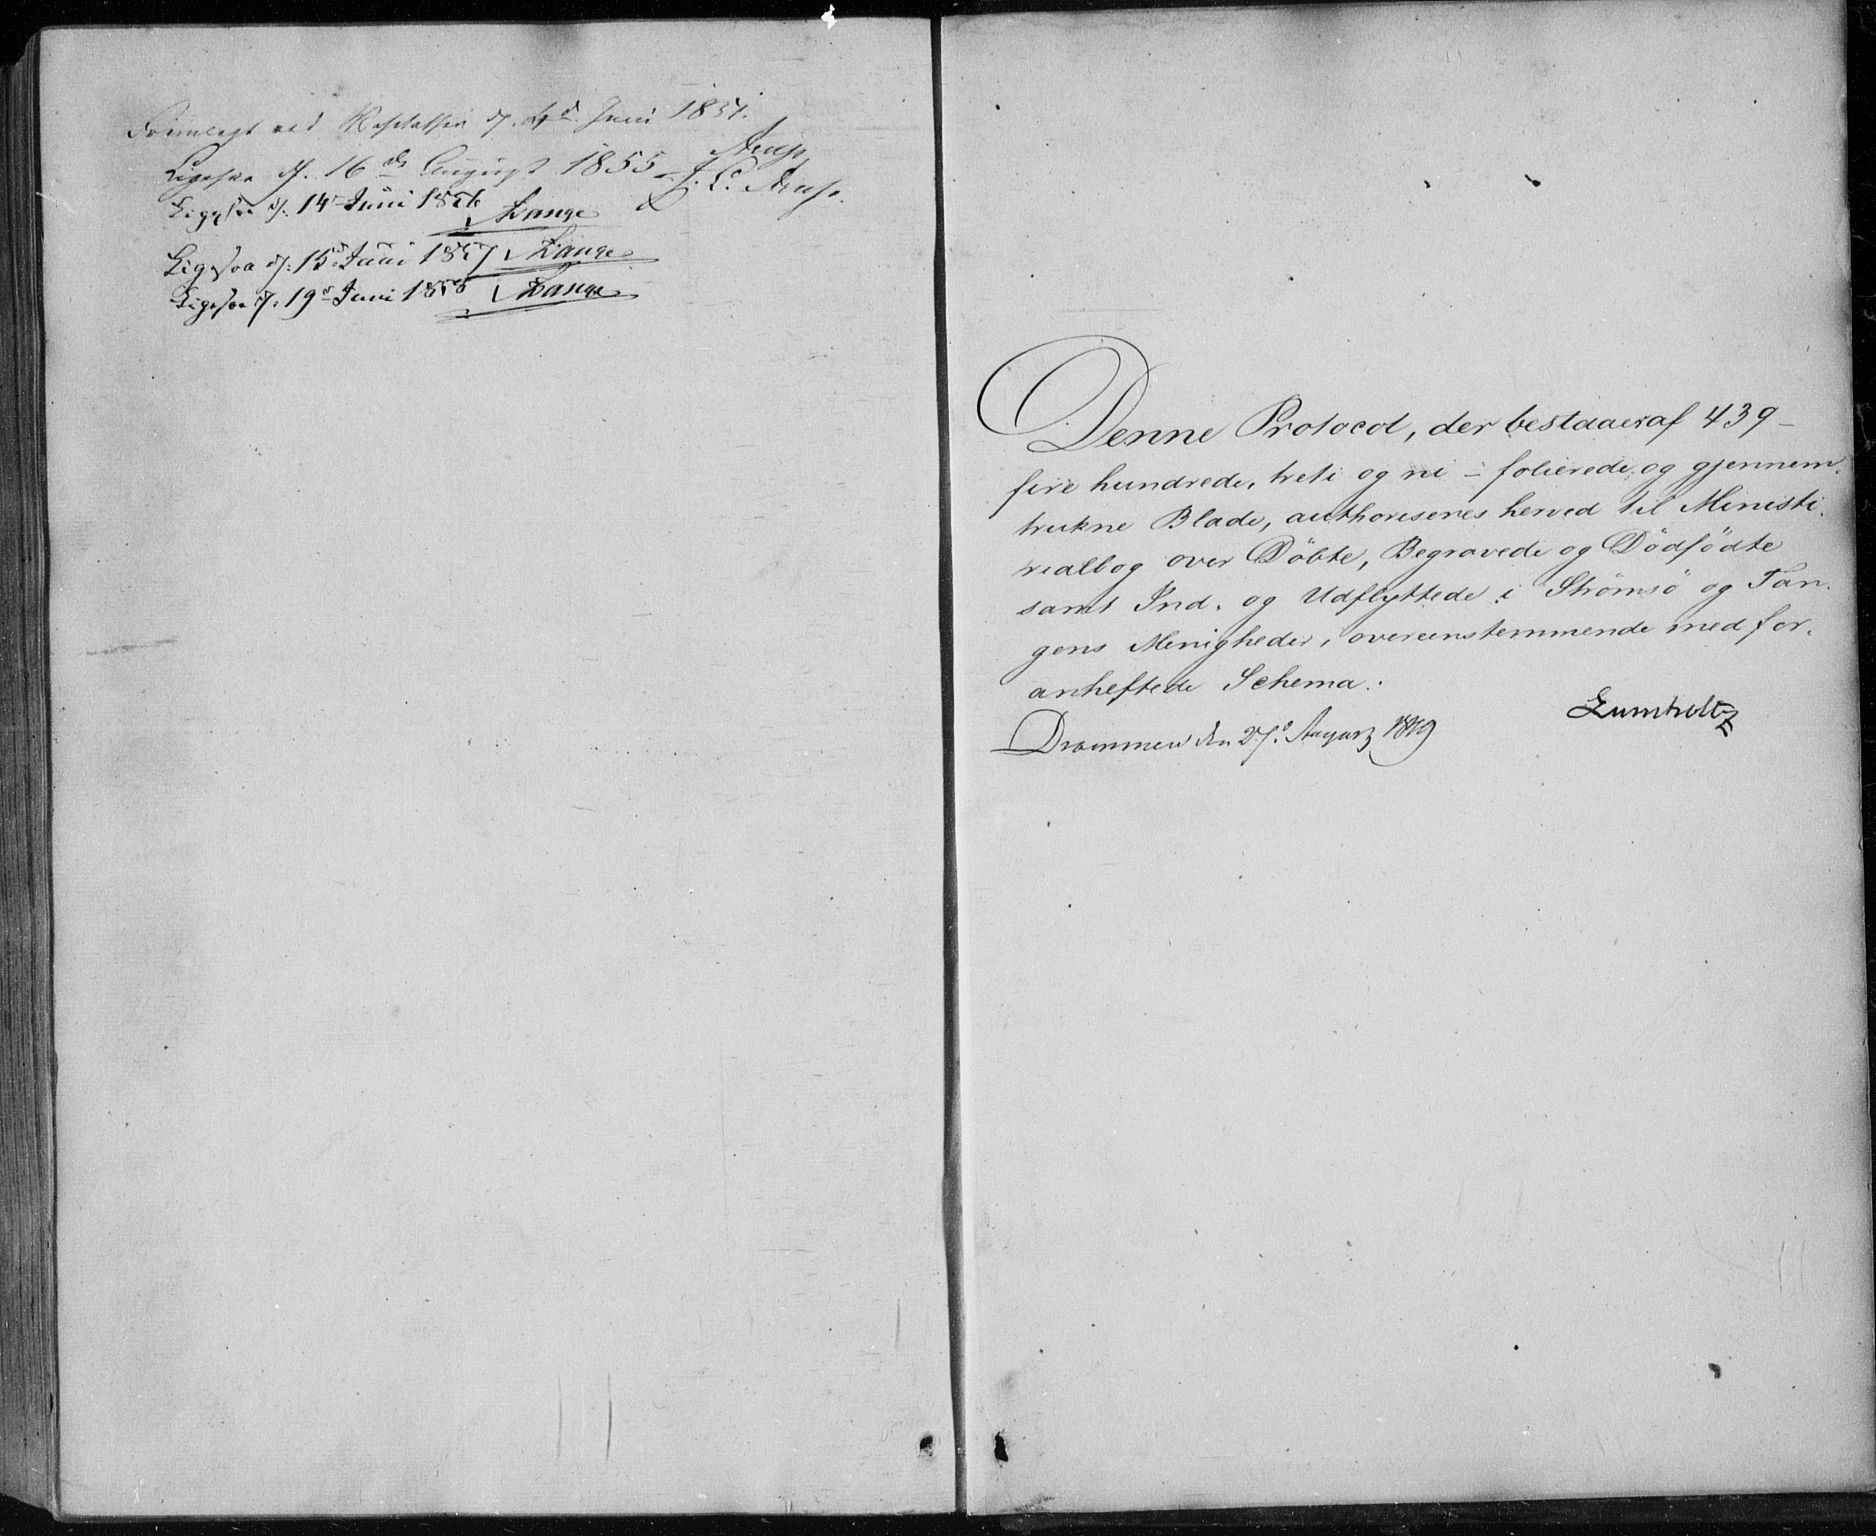 Fremlagt ved Visitatsen d. 4d. Juni 1851.
Arup
Ligesaa d. 16de August 1855 J. L. Arup.
Ligesaa d. 14d Juni 1856 Lange
Ligesaa d. 15d Juni 1857 Lange
Ligesaa d. 19d Juni 1858 Lange
Denne Protocol, der bestaaer af 439 -
fire hundrede, treti og ni - folierede og gjennem-
trukne Blade, authoriseres herved til Ministe-
rialbog over Döbte, Begravede og Dödfödte
samt Ind- og Udflyttede i Strömsö og Tan-
gens Menigheder, overeenstemmende med for-
anheftede Schema.
Drammen den 27d August 1849
Lumholtz